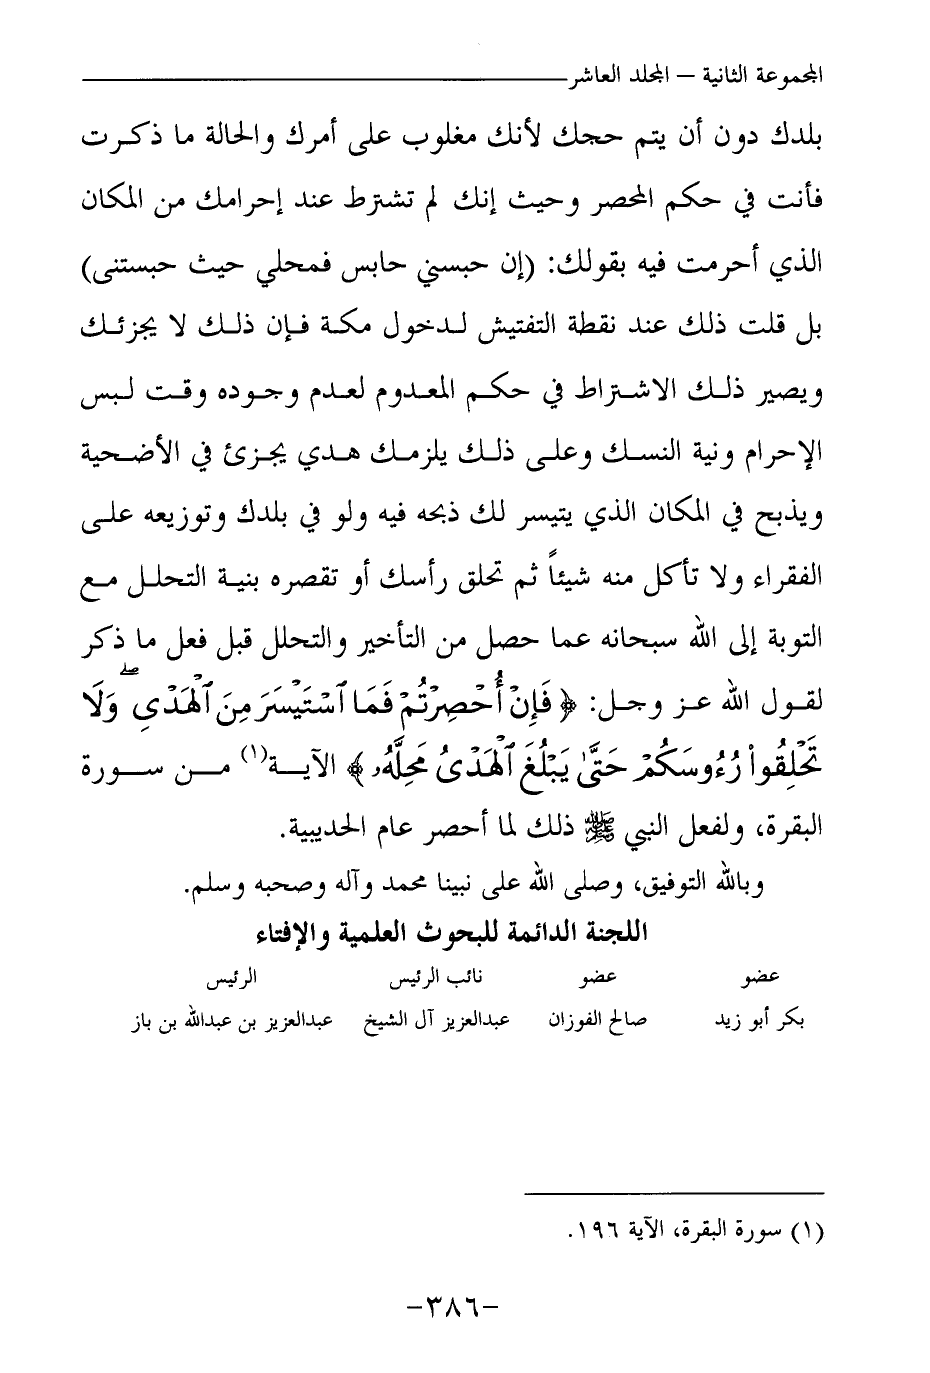 المجموعة الثانية – المجلد العاشر
بلدك دون أن يتم حجك لأنك مغلوب على أمرك والحالة ما ذكرت
فأنت في حكم المحصر وحيث إنك لم تشترط عند إحرامك من المكان
الذي أحرمت فيه بقولك: (إن حبسني حابس فمحلي حيث حبستنى)
بل قلت ذلك عند نقطة التفتيش لدخول مكة فإن ذلك لا يجزئك
ويصير ذلك الاشتراط في حكم المعدوم لعدم وجوده وقت لبس
الإحرام ونية النسك وعلى ذلك يلزمك هدي يجزئ في الأضحية
ويذبح في المكان الذي يتيسر لك ذبحه فيه ولو في بلدك وتوزيعه على
الفقراء ولا تأكل منه شيئاً ثم تحلق رأسك أو تقصره بنية التحلل مع
التوبة إلى الله سبحانه عما حصل من التأخير والتحلل قبل فعل ما ذكر
لقول الله عز وجل: ﴿ فَإِنْ أُحْصِرْتُمْ فَمَا ٱسْتَيْسَرَ مِنَ ٱلْهَدْيِ ۖ وَلَا
تَحْلِقُوا۟ رُءُوسَكُمْ حَتَّىٰ يَبْلُغَ ٱلْهَدْىُ مَحِلَّهُۥ ﴾ الآية(١) من سورة
البقرة، ولفعل النبي ﷺ ذلك لما أحصر عام الحديبية.
وبالله التوفيق، وصلى الله على نبينا محمد وآله وصحبه وسلم.
اللجنة الدائمة للبحوث العلمية والإفتاء
عضو عضو نائب الرئيس الرئيس
بكر أبو زيد صالح الفوزان عبدالعزيز آل الشيخ عبدالعزيز بن عبدالله بن باز
(١) سورة البقرة، الآية ١٩٦.
-٣٨٦-